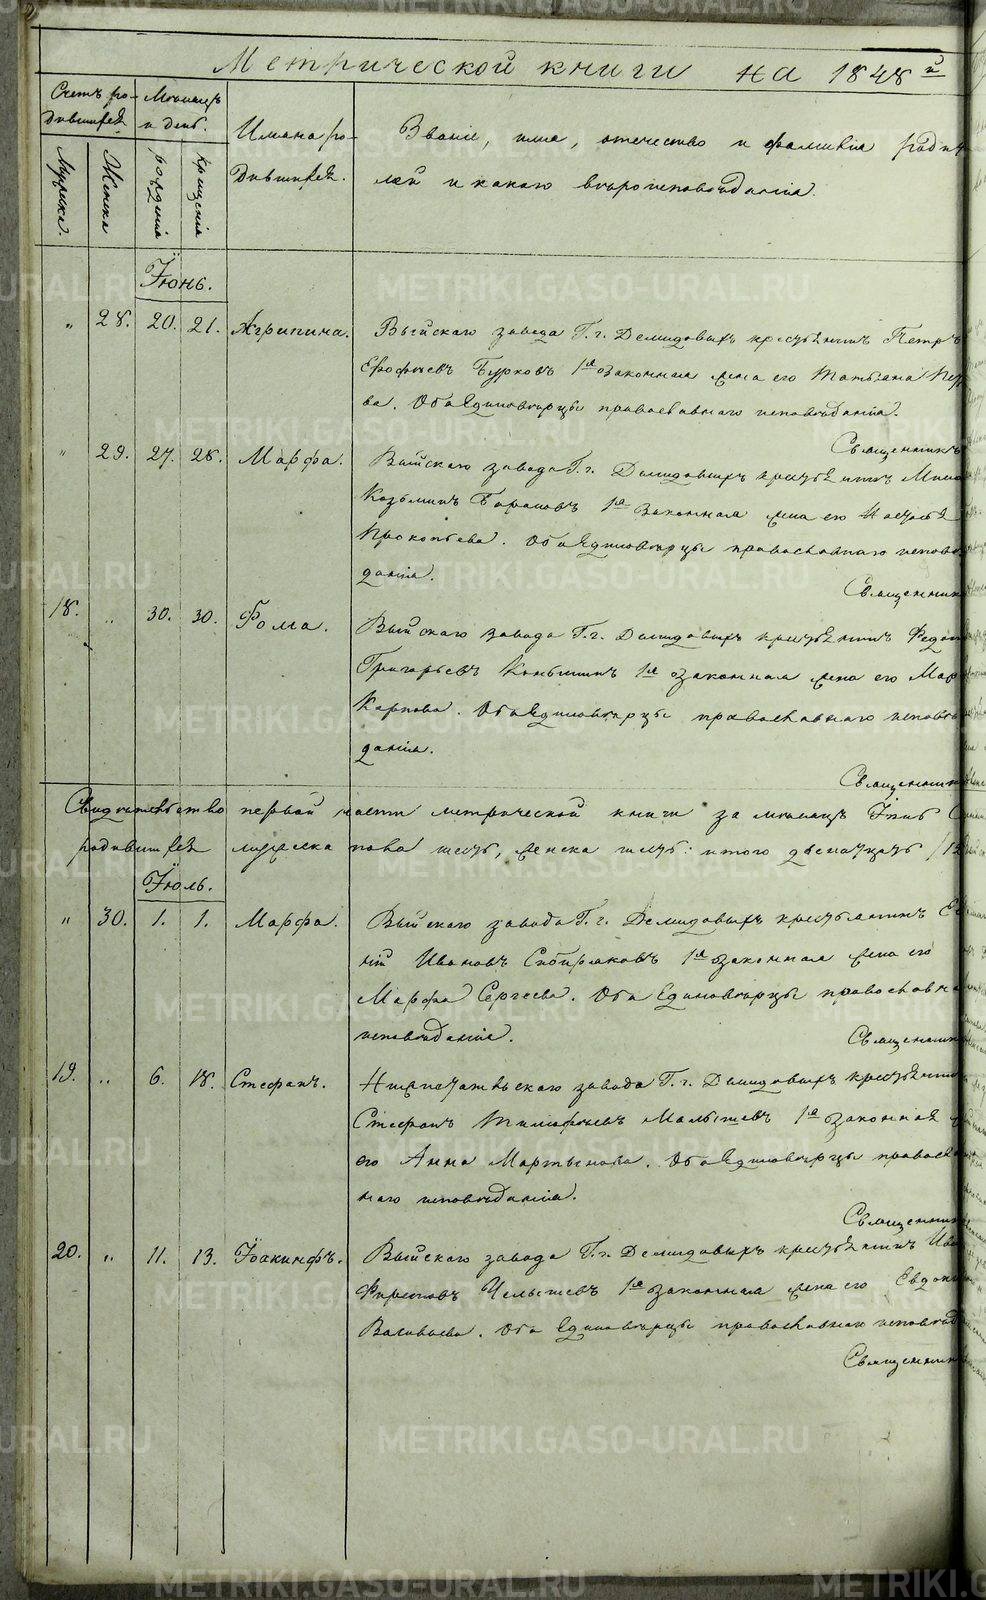 Метрической книги на 1848й
Счетъ родившихся.
Мѣсяцъ и день.
Имена родившихся.
Званіе, имя, отечество и фамилія родителей и какого вѣроисповѣданія.
Мужеска.
Женска
рожденія
крещенія
Іюнь.
" 28. 20. 21. Агрипина. Выйскаго завода Г.г. Демидовыхъ крестьянинъ Петръ
Ерофѣевъ Бурковъ 1я законная жена его Татьяна
ва. Оба Единовѣрцы православнаго исповѣданія.
Священникъ
" 29. 27. 28. Марфа. Выйскаго завода Г.г. Демидовыхъ крестьянинъ
Козьминъ 1я законная жена его
Прокопьева. Оба Единовѣрцы православнаго исповѣ
данія.
Священник
18. " 30. 30. Фома. Выйскаго завода Г.г. Демидовыхъ крестьянинъ Федо
Григорьевъ 1я законная жена его Мар
Карпова. Оба Единовѣрцы православнаго исповѣ
данія.
Священник
Свидѣтельство первой части метрической книги за мѣсяцъ Іюнь
родившихся мужеска пола шесть, женска шесть: итого двенатцать /12
Іюль.
" 30. 1. 1. Марфа. Выйскаго завода Г.г. Демидовыхъ крестьянинъ Ев
ній Ивановъ Сибиряковъ 1я законная жена его
Марфа Сергеева. Оба Единовѣрцы православна
исповѣданія.
Священник
19. " 6. 18. Стефанъ. Нижнетагильскаго завода Г.г. Демидовыхъ крестьянин
Стефанъ Тимофѣевъ Малышевъ 1я законная ж
его Анна Мартынова. Оба Единовѣрцы правосл
наго исповѣданія.
Священник
20. " 11. 13. Іоакинфъ. Выйскаго завода Г.г. Демидовыхъ крестьянинъ Ива
Фирсовъ Челышевъ 1я законная жена его Евдоки
Васильева. Оба Единовѣрцы православнаго исповѣд
Священник
METRIKI.GASO-URAL.RU